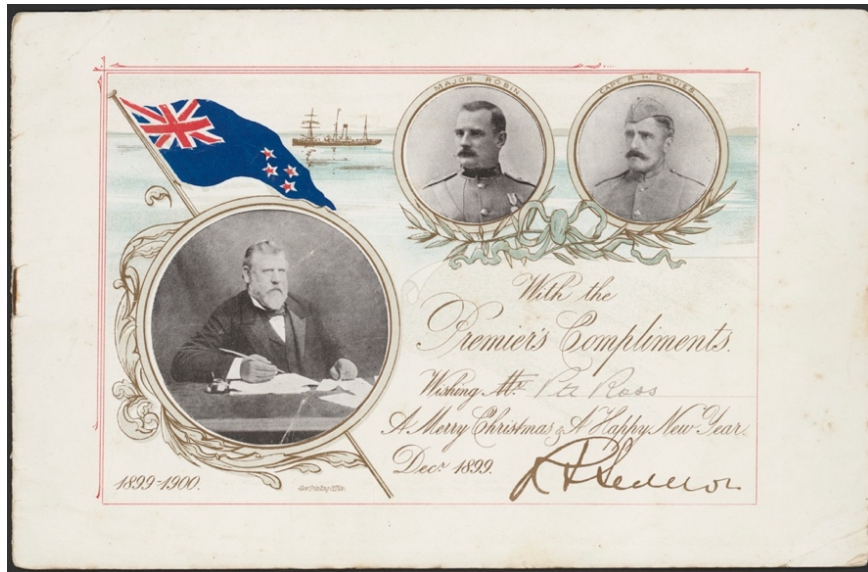 MAJOR ROBIN
CAPT. R. H. DAVIES
With the
Premier's Compliments.
Wishing Mr. Ross
A Merry Christmas & A Happy New Year.
Decr. 1899.
R J Seddon
1899-1900.